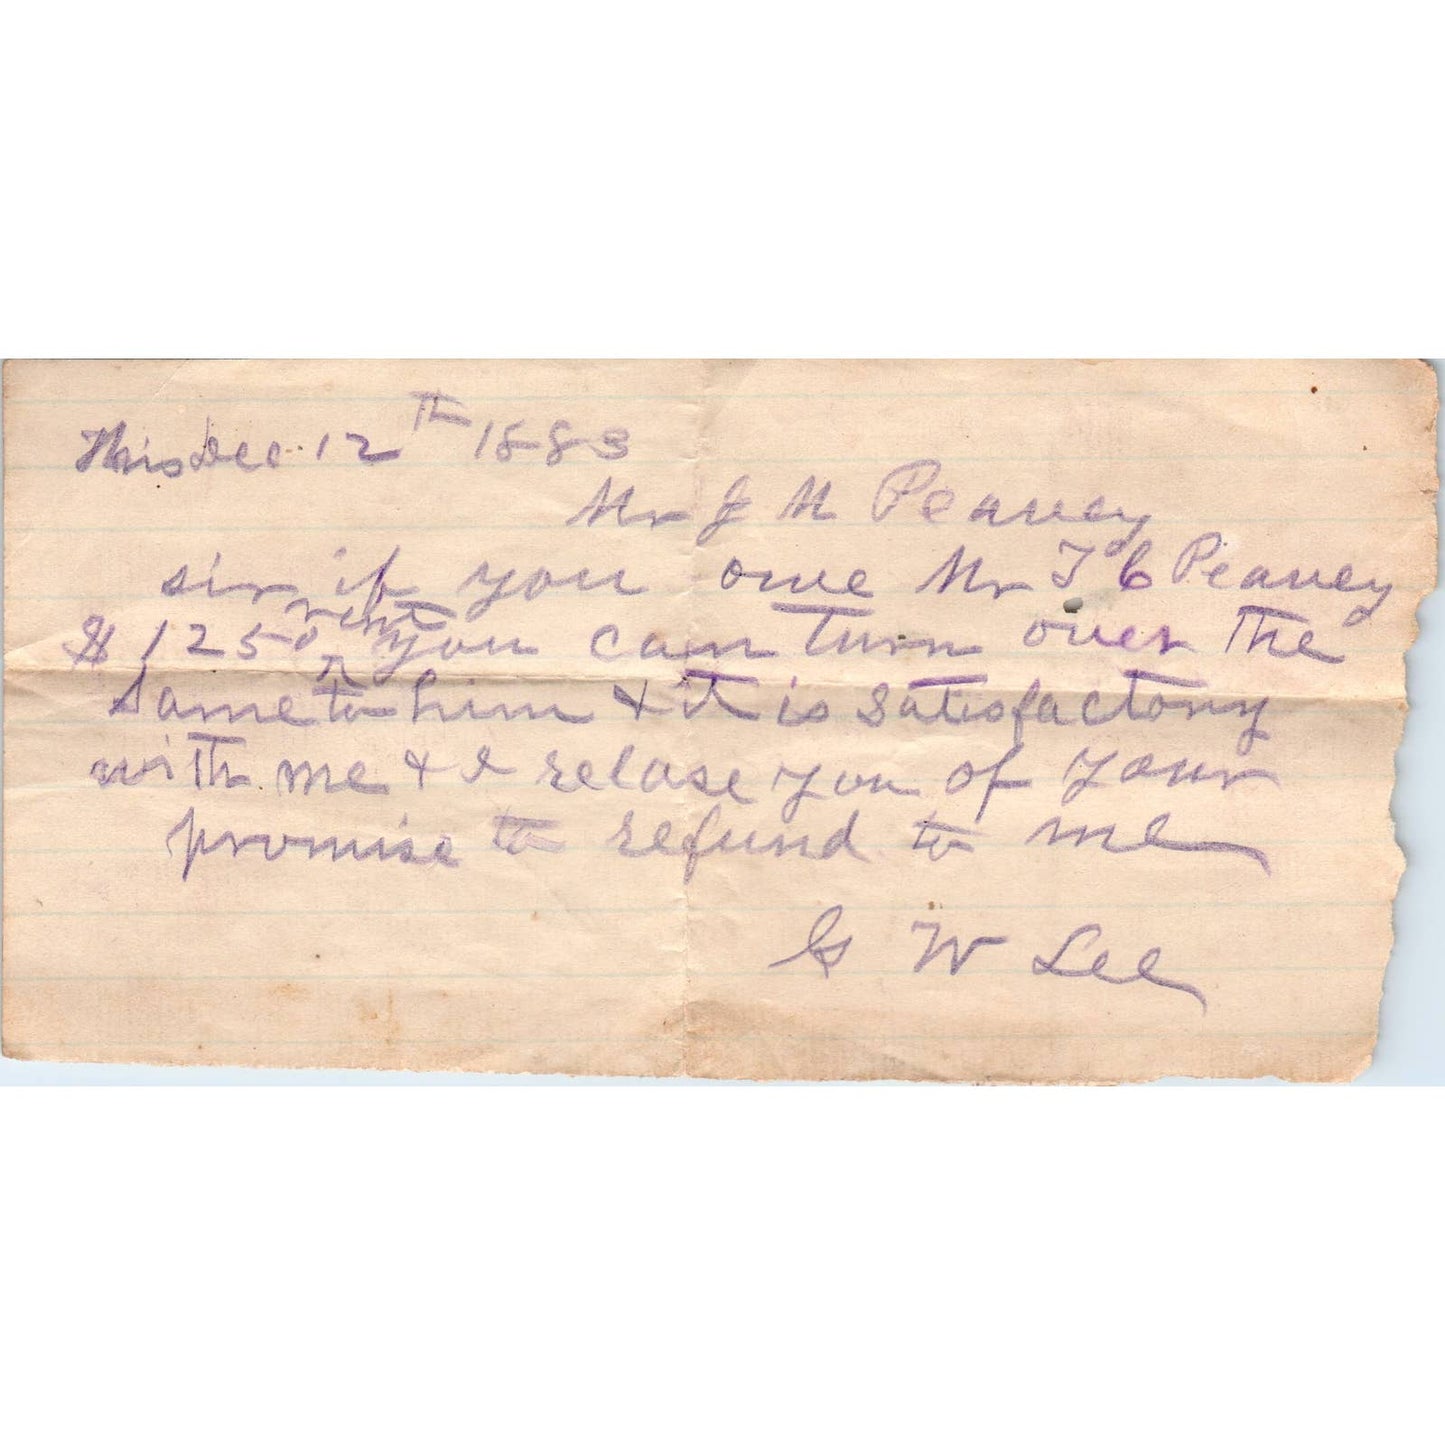 This Dec. 12th 1883
Mr J M Peavey
sir if you owe Mr T C Peavey
rent
$ 1250 ^ you can turn over the
same to him & it is satisfactory
with me & I relase you of your
promise to refund to me
G W Lee